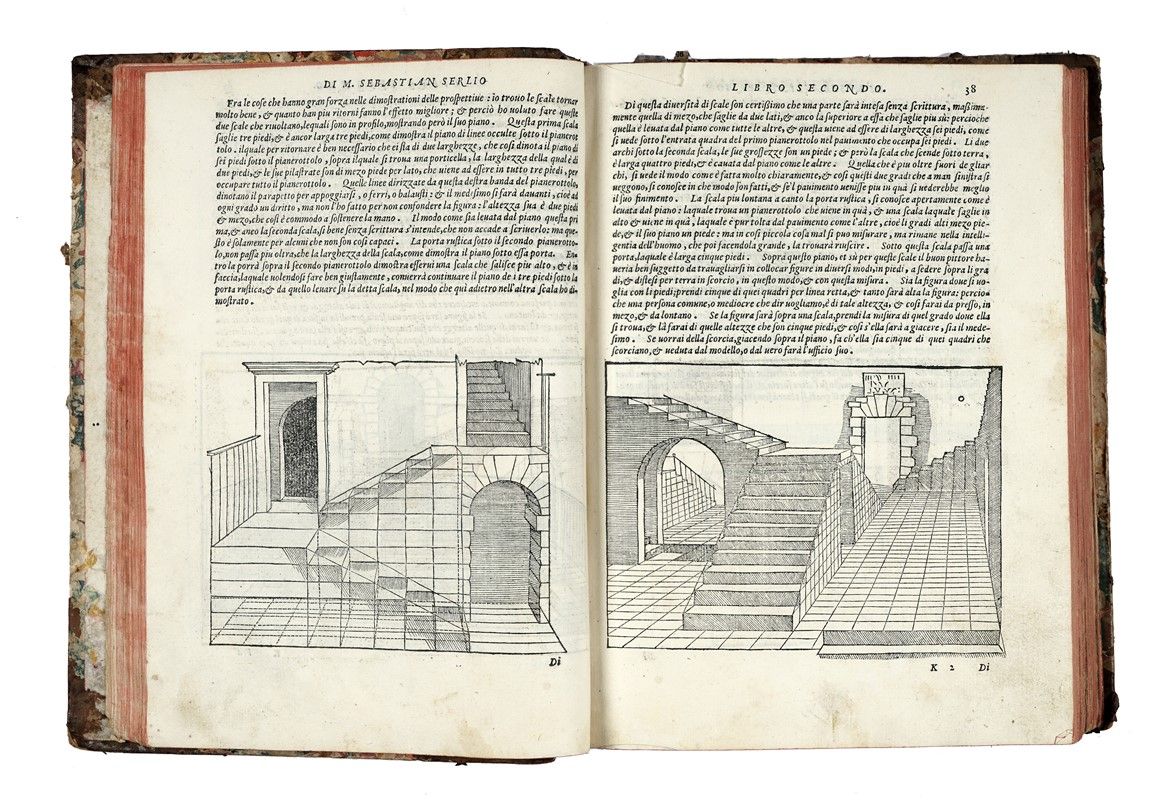 DI M. SEBASTIAN SERLIO
Fra le cose che hanno gran forza nelle dimostrationi delle prospettiue: io trouo le scale tornar
molto bene, & quanto han piu ritorni fanno l'effetto migliore; & perciò ho uoluto fare queste
due scale che riuoltano, lequali sono in profilo, mostrando però il suo piano. Questa prima scala
saglie tre piedi, & è ancor larga tre piedi, come dimostra il piano di linee occulte sotto il pianerot
tolo. ilquale per ritornare è ben necessario che ei sia di due larghezze, che così dinota il piano di
sei piedi sotto il pianerottolo, sopra ilquale si troua una porticella, la larghezza della qual è di
due piedi, & le sue pilastrate son di mezo piede per lato, che uiene ad essere in tutto tre piedi, per
occupare tutto il pianerottolo. Quelle linee dirizzate da questa destra banda del pianerottolo,
dinotano il parapetto per appoggiarsi, o ferri, o balausti: & il medesimo si farà dauanti, cioè ad
ogni grado un diritto, ma non l'ho fatto per non confondere la figura: l'altezza sua è due piedi
& mezo, che così è commodo a sostenere la mano. Il modo come sia leuata dal piano questa pri
ma, & anco la seconda scala, si bene senza scrittura s'intende, che non accade a scriuerlo: ma que-
sto è solamente per alcuni che non son così capaci. La porta rustica sotto il secondo pianerotto-
lo, non passa piu oltra, che la larghezza della scala, come dimostra il piano sotto essa porta. En-
tro la porta sopra il secondo pianerottolo dimostra esserui una scala che salisce piu alto, & è in
faccia, laquale uolendosi fare ben giustamente, conuerrà continuare il piano de i tre piedi sotto la
porta rustica, & da quello leuare su la detta scala, nel modo che quì adietro nell'altra scala ho di-
mostrato.
Di
LIBRO SECONDO. 38
Di questa diuersità di scale son certissimo che una parte sarà intesa senza scrittura, massima-
mente quella di mezo, che saglie da due lati, & anco la superiore a essa che saglie piu sù: percioche
quella è leuata dal piano come tutte le altre, & questa uiene ad essere di larghezza sei piedi, come
si uede sotto l'entrata quadra del primo pianerottolo nel pauimento che occupa sei piedi. Li due
archi sotto la seconda scala, le sue grossezze son un piede; & però la scala che scende sotto terra,
è larga quattro piedi, & è cauata dal piano come le altre. Quella che è piu oltre fuori de gliar
chi, si uede il modo come è fatta molto chiaramente, & così questi due gradi che a man sinistra si
ueggono, si conosce in che modo son fatti, & se'l pauimento uenisse piu in quà si uederebbe meglio
il suo finimento. La scala piu lontana a canto la porta rustica, si conosce apertamente come è
leuata dal piano: laquale troua un pianerottolo che uiene in quà, & una scala laquale saglie in
alto & uiene in quà, laquale è pur tolta dal pauimento come l'altre, cioè li gradi alti mezo pie-
de, & il suo piano un piede: ma in così piccola cosa mal si puo misurare, ma rimane nella intelli-
gentia dell'huomo, che poi facendola grande, la trouarà riuscire. Sotto questa scala passa una
porta, laquale è larga cinque piedi. Sopra questo piano, et sù per queste scale il buon pittore ha-
ueria ben suggetto da trauagliarsi in collocar figure in diuersi modi, in piedi, a sedere sopra li gra
di, & distesi per terra in scorcio, in questo modo, & con questa misura. Sia la figura doue si uo-
glia con li piedi; prendi cinque di quei quadri per linea retta, & tanto sarà alta la figura: percio-
che una persona comune, o mediocre che dir uogliamo, è di tale altezza, & così farai da presso, in
mezo, & da lontano. Se la figura sarà sopra una scala, prendi la misura di quel grado doue ella
si troua, & là farai di quelle altezze che son cinque piedi, & così s'ella sarà a giacere, sia il mede-
simo. Se uorrai della scorcia, giacendo sopra il piano, fa ch'ella sia cinque di quei quadri che
scorciano, & ueduta dal modello, o dal uero farà l'ufficio suo.
K 2 Di